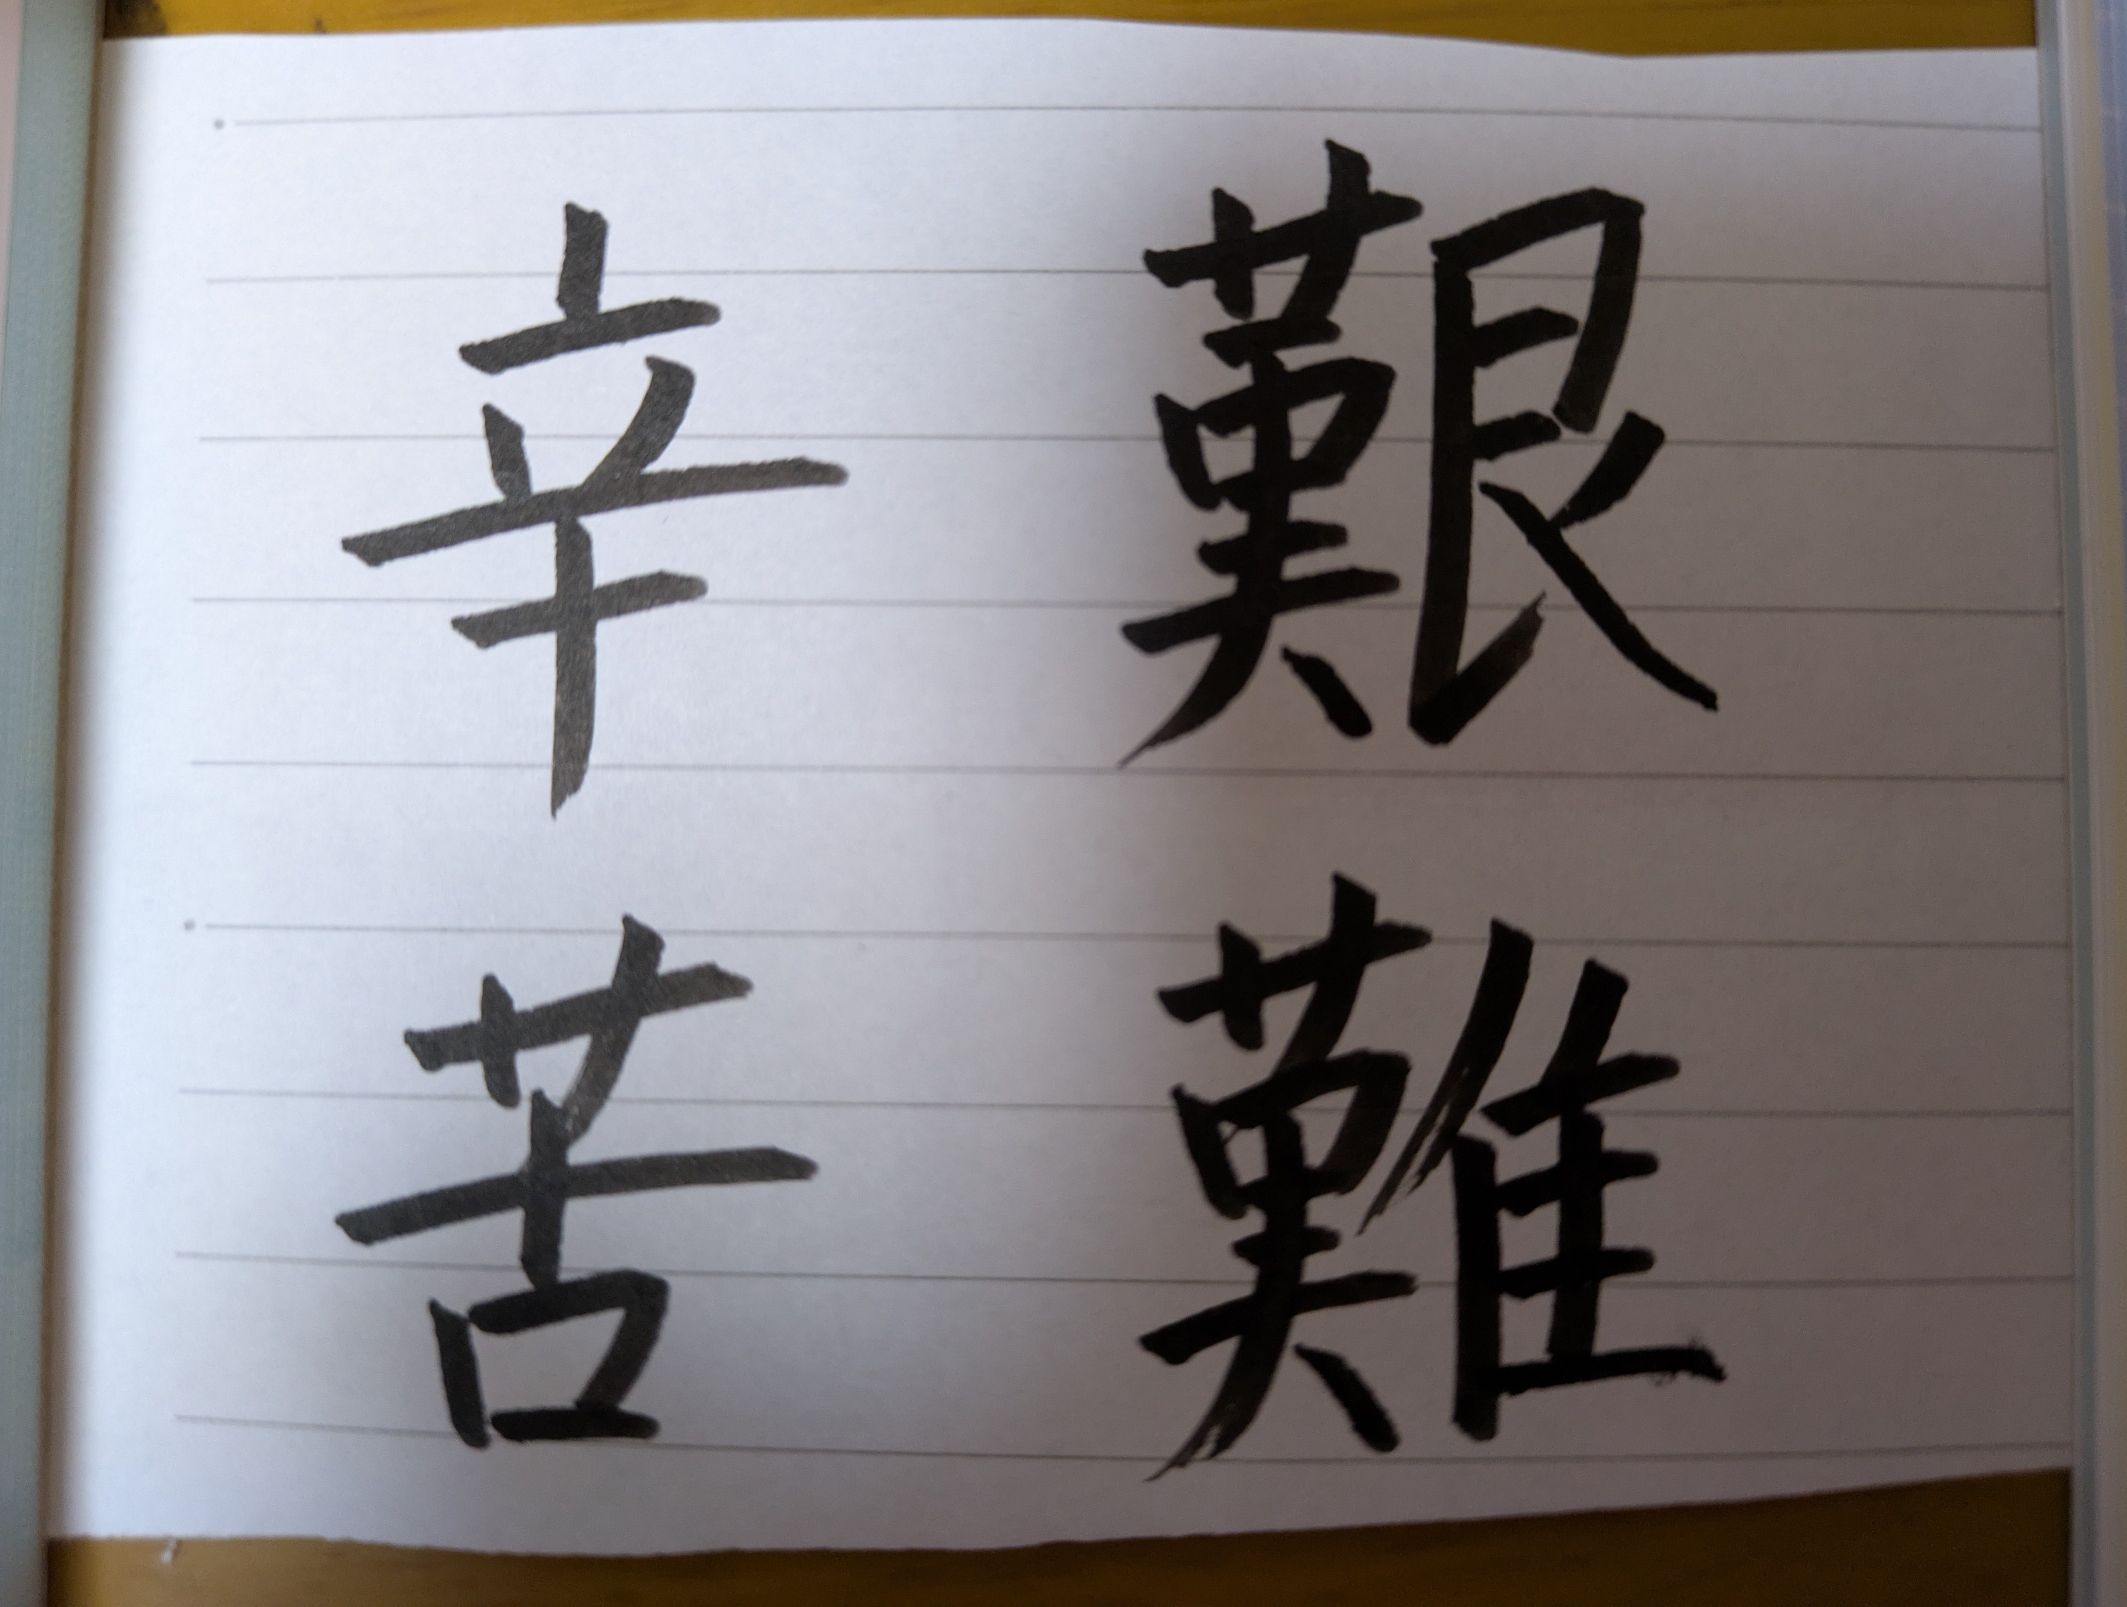 艱難
辛苦